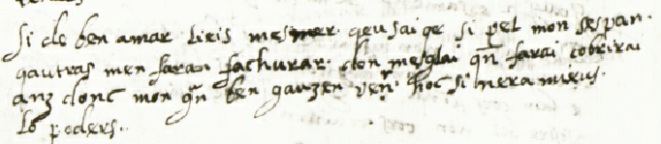 Si de ben amar lieis mesmer. qeu sai ge si pel mon sespan.
qautras men faran fachurar. don mesglai qñ farai cobrirai
anz donc mon qñ ben gauzen veñ. hoc si mera mieus.
lo poders..